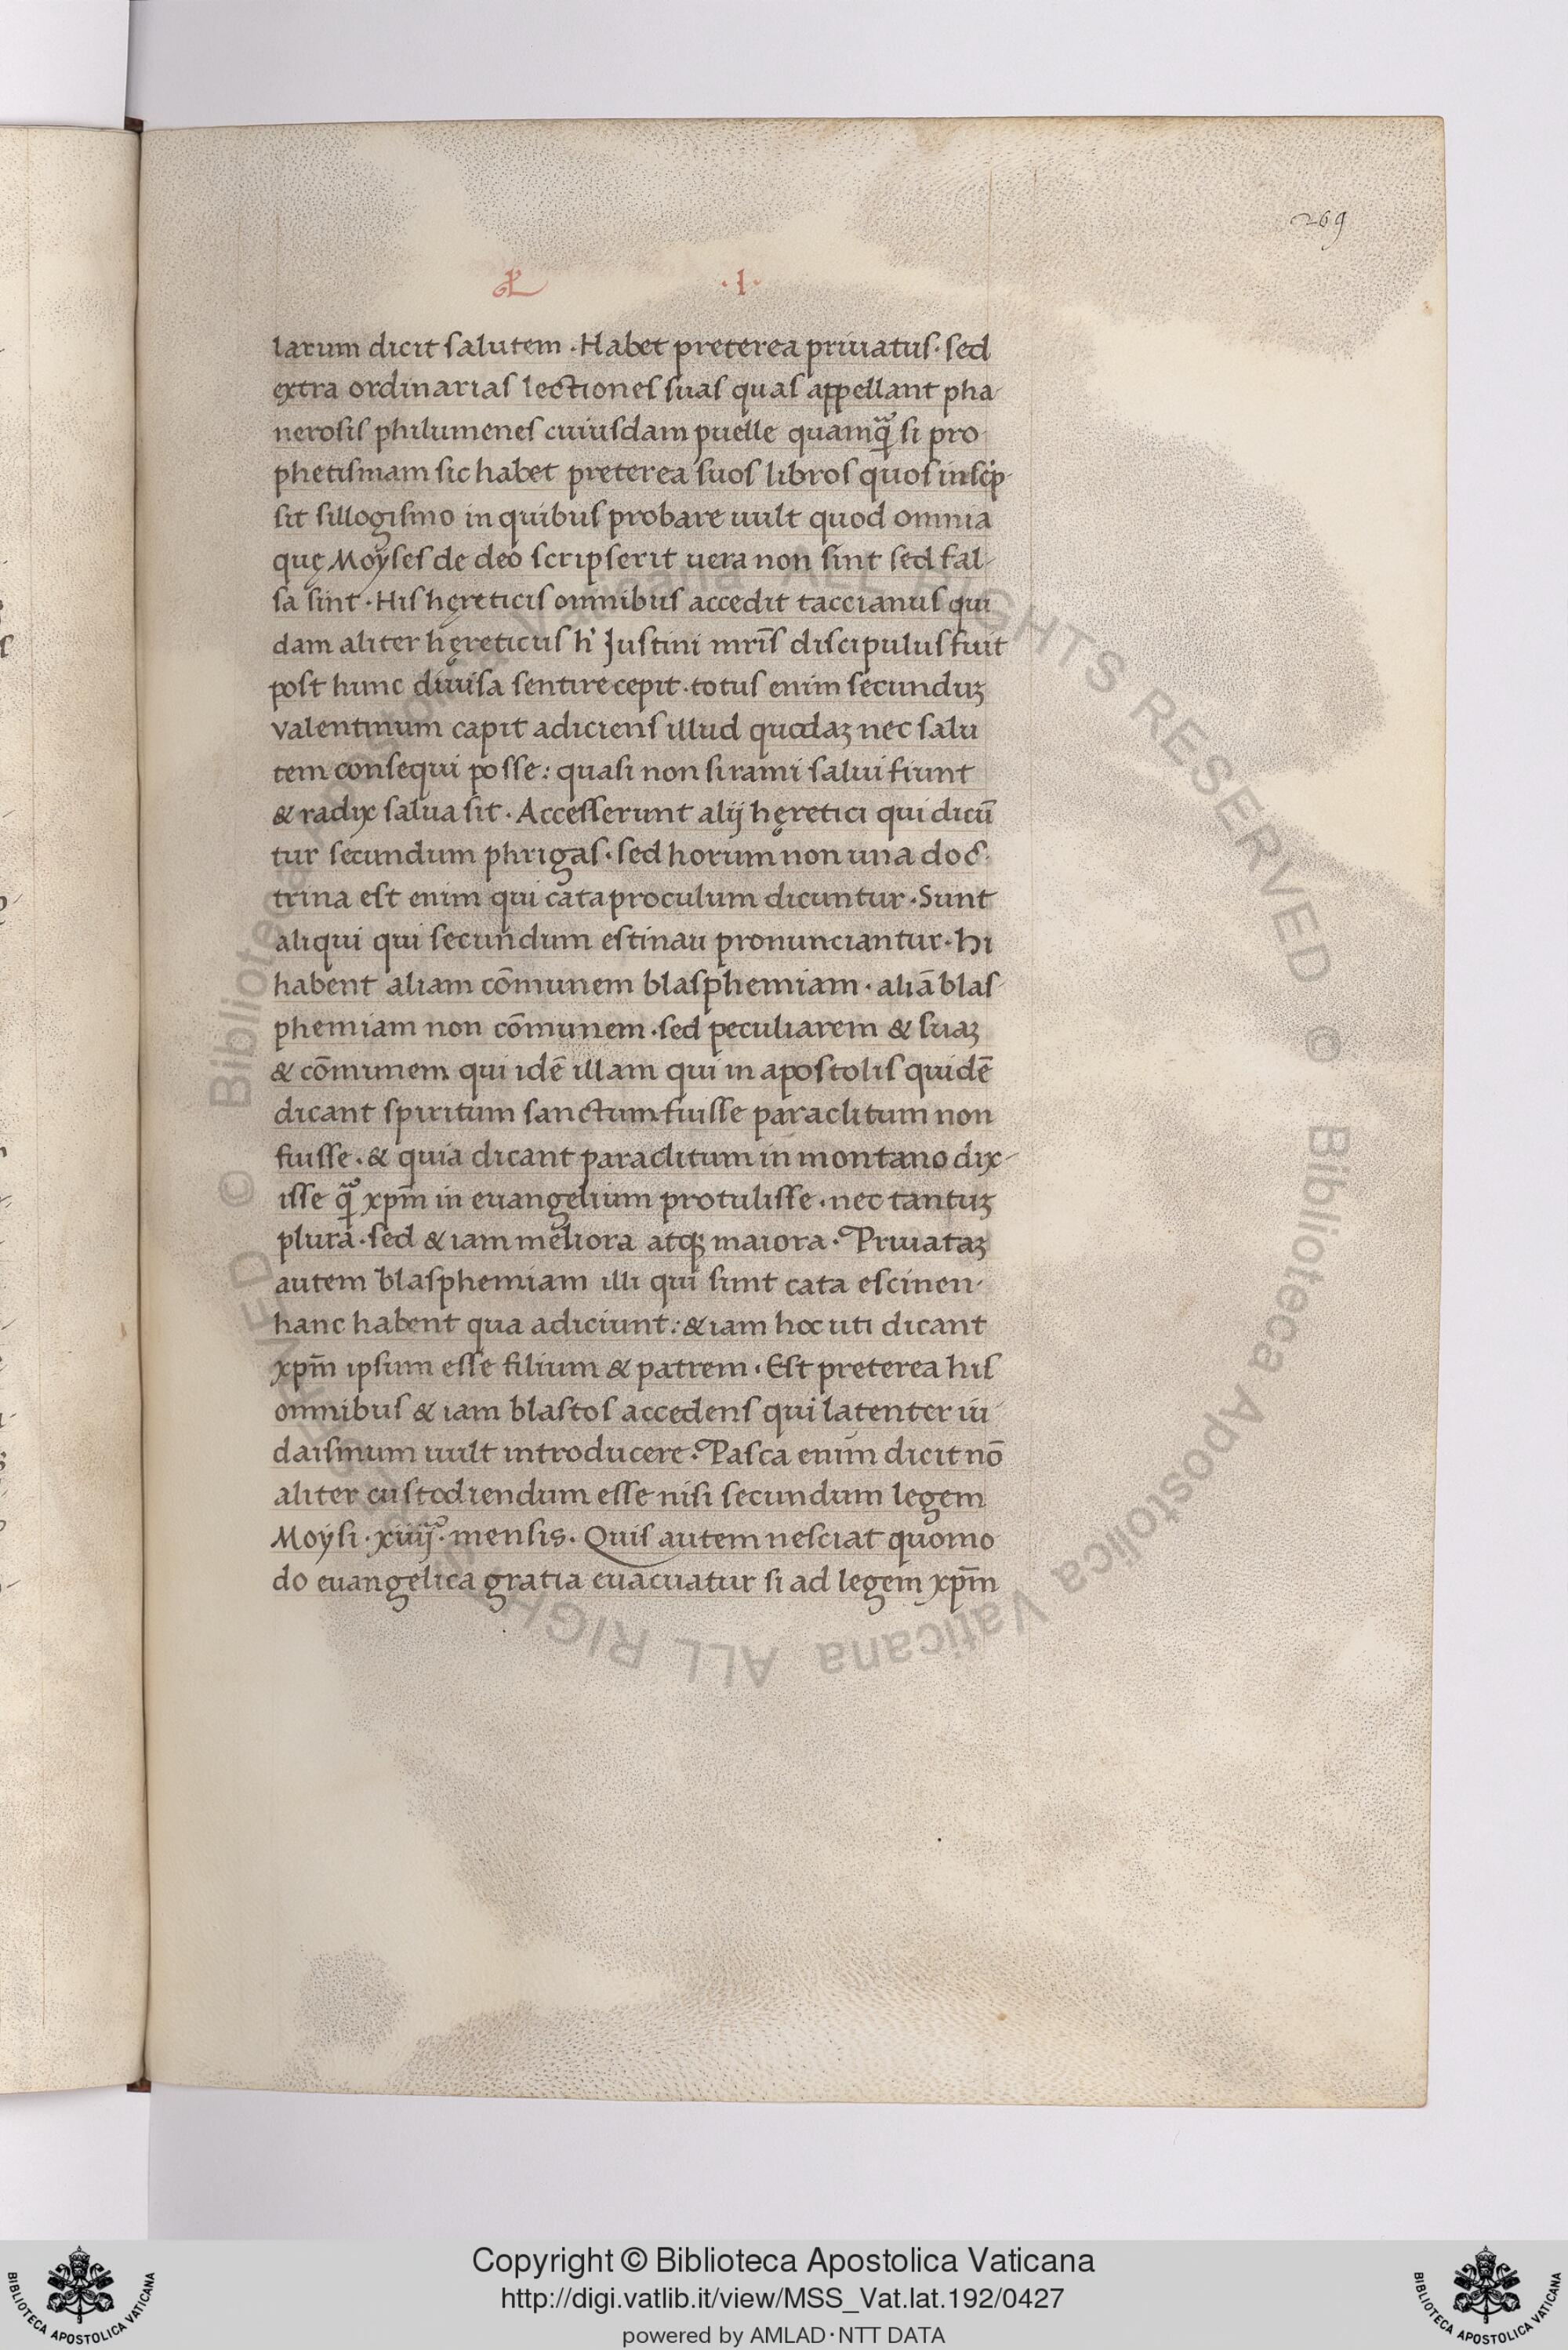 269
·I·
larum dicit salutem · Habet preterea priuatus · sed
extra ordinarias lectiones suas quas appellant pha-
nerosis philumenes cuiusdam puelle quamqᷓ si pro-
phetismam sic habet preterea suos libros quos inscͥp-
sit sillogismo in quibus probare uult quod omnia
quę Moẏses de deo scripserit uera non sint sed fal-
sa sint · His hęreticis omnibus accedit taccianus qui
dam aliter hęreticus h' Justini mr̄is discipulus fuit
post hunc diuisa sentire cepit · totus enim secunduꝫ
valentinum capit adiciens illud quodaꝫ nec salu
tem consequi posse : quasi non si rami salui fiunt
& radix salua sit · Accesserunt alij hęretici qui dicū
tur secundum phrigas · sed horum non una doc-
trina est enim qui cata proculum dicuntur · Sunt
aliqui qui secundum estinau pronunciantur · hi
habent aliam cōmunem blasphemiam · aliā blas-
phemiam non cōmunem · sed peculiarem & suaꝫ
& cōmunem qui idē illam qui in apostolis quidē
dicant spiritum sanctum fuisse paraclitum non
fuisse · & quia dicant paraclitum in montano dix-
isse qᷓ xpm̄ in euangelium protulisse · nec tantuꝫ
plura · sed & iam meliora atqꝫ maiora · Priuataꝫ
autem blasphemiam illi qui sunt cata escinen-
hanc habent qua adiciunt : & iam hoc uti dicant
xpm̄ ipsum esse filium & patrem · Est preterea his
omnibus & iam blastos accedens qui latenter iu-
daismum uult introducere · Pasca enim dicit nō
aliter custodiendum esse nisi secundum legem
Moẏsi · xiiijᵃ · mensis · Quis autem nesciat quomo
do euangelica gratia euacuatur si ad legem xpm̄
© Biblioteca Apostolica Vaticana ALL RIGHTS RESERVED © Biblioteca Apostolica Vaticana ALL RIGHTS RESERVED
Copyright © Biblioteca Apostolica Vaticana
http://digi.vatlib.it/view/MSS_Vat.lat.192/0427
powered by AMLAD·NTT DATA
BIBLIOTECA APOSTOLICA VATICANA
BIBLIOTECA APOSTOLICA VATICANA